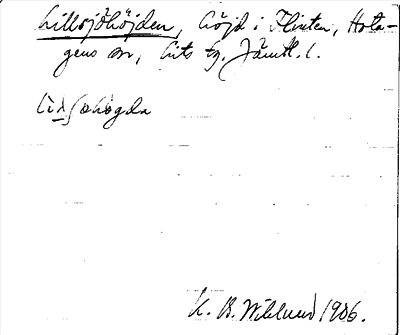 Lillsjöhöjden, höjd i Flinten, Hota-
gens sn, Lits tg, Jämtl. l.
K. B. Wiklund 1906.